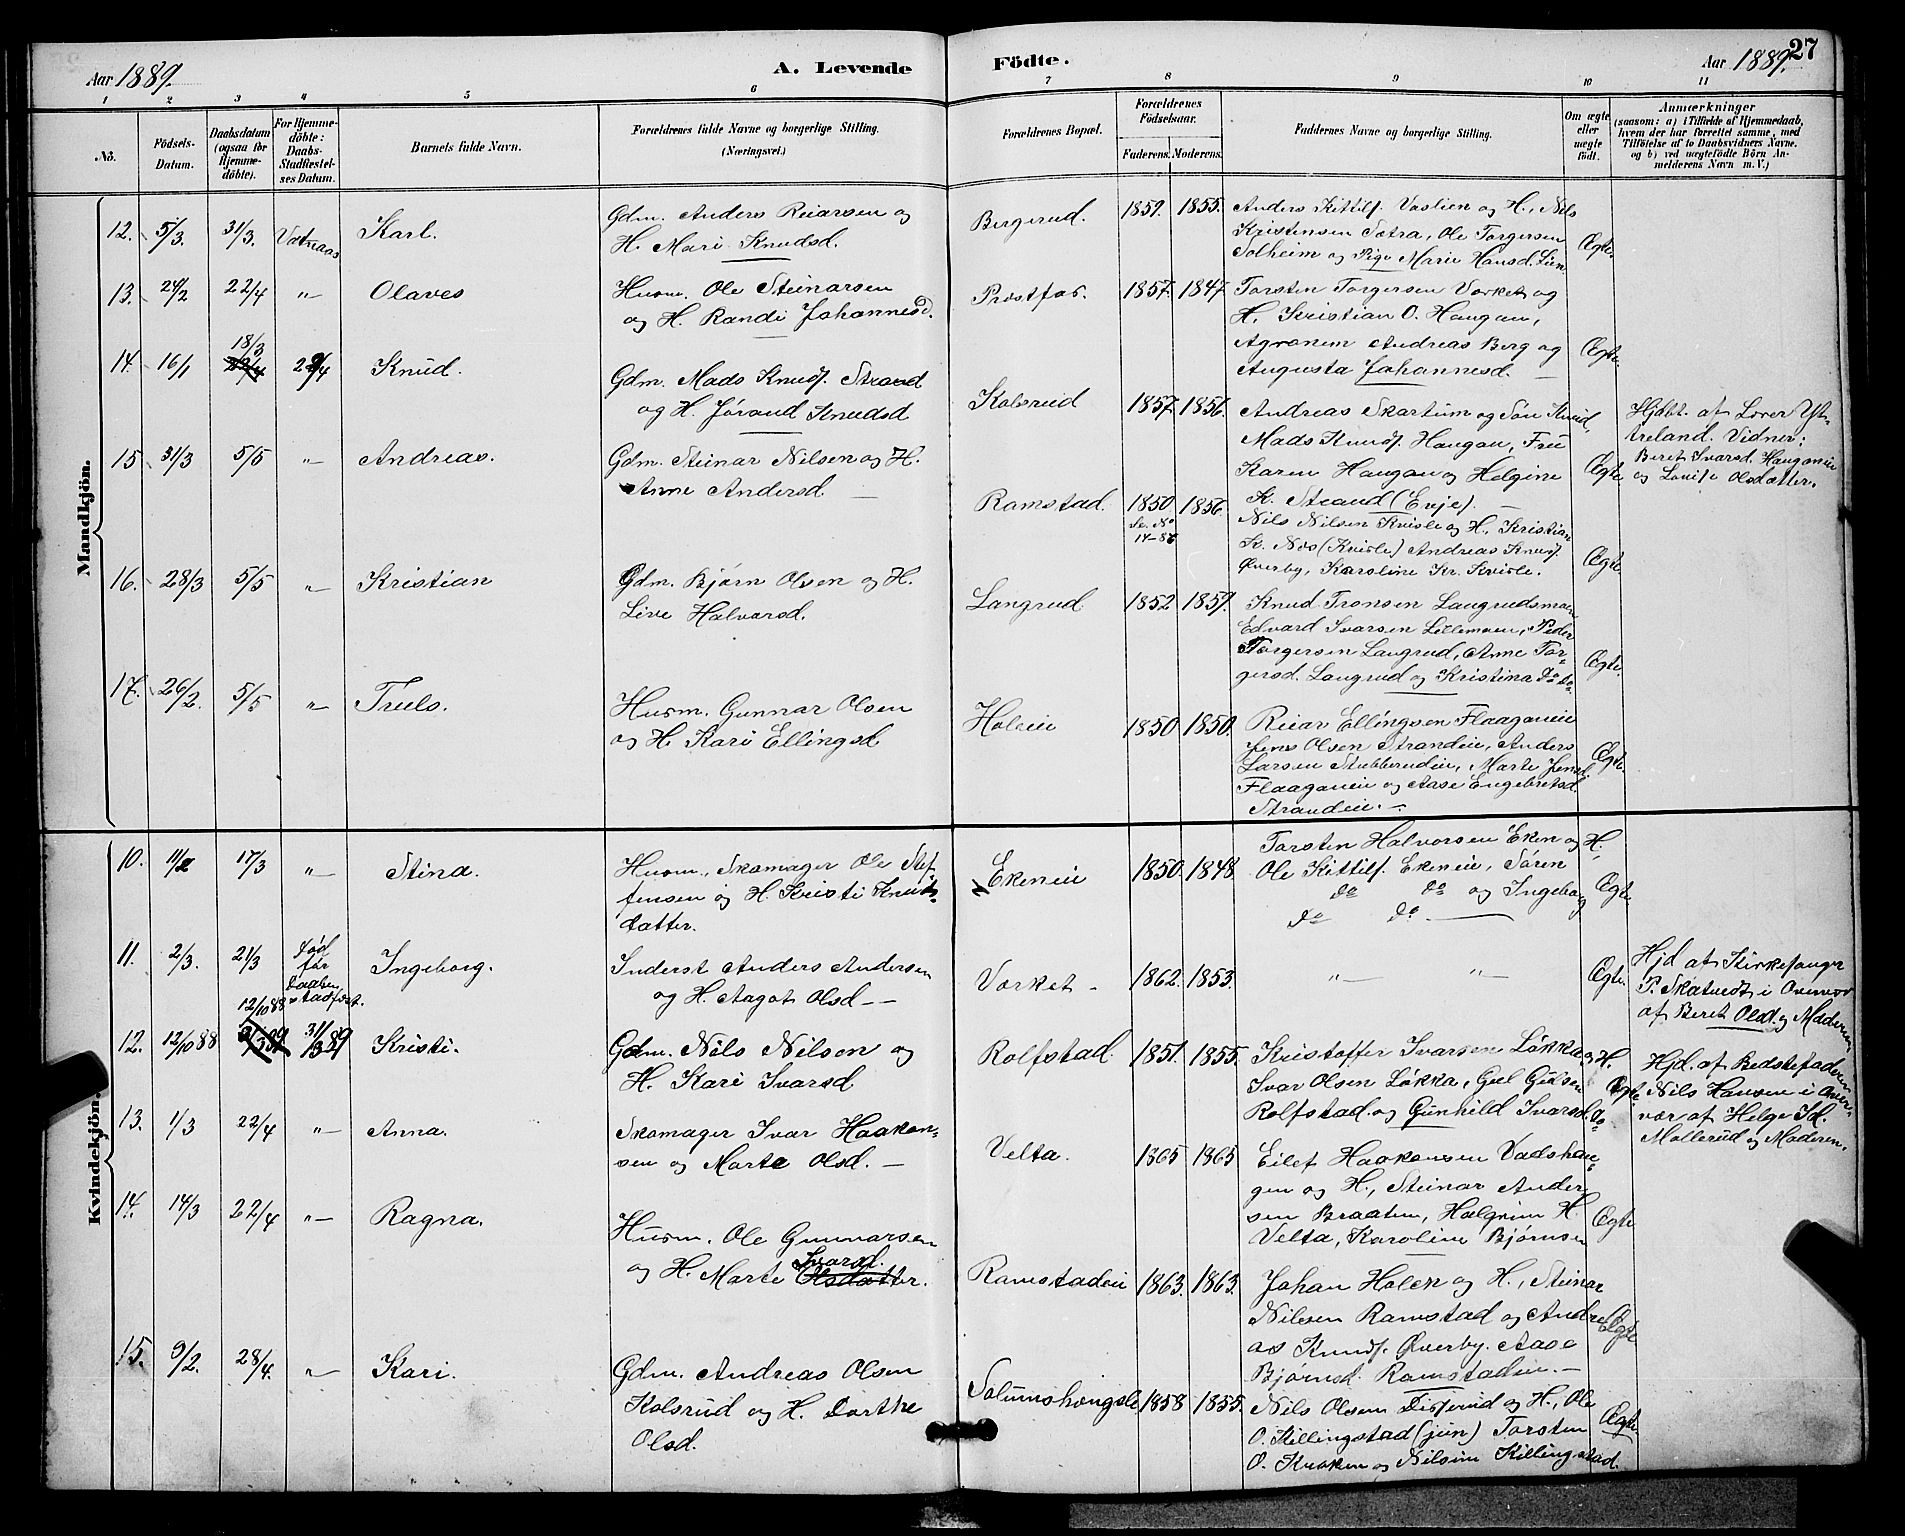 27
Aar 1889.
A. Levende
Födte.
Aar 1889.
1 2 3 4 5 6 7 8 9 10 11
No.
Födsels-
Datum.
Daabsdatum
(ogsaa for
Hjemme-
döbte).
For Hjemme-
döbte:
Daabs-
Stadfæstel-
ses Datum.
Barnets fulde Navn.
Forældrenes fulde Navne og borgerlige Stilling.
(Næringsvei.)
Forældrenes Bopæl.
Forældrenes
Födselsaar.
Faderens. Moderens.
Faddernes Navne og borgerlige Stilling.
Om ægte
eller
uægte
født.
Anmærkninger
(saasom: a) i Tilfælde af Hjemmedaab,
hvem der har forrettet samme, med
Tilföielse af to Daabsvidners Navne.
og b) ved uægtefödte Börn An-
melderens Navn m. V.)
Mandkjön.
12. 5/3. 31/3. Vatnaas Karl.
Gdm. Anders Reiarsen og
H. Mari Knudsd.
Bergerud. 1859. 1855.
Anders Kittilf. Vaslien og H., Nils
Kristensen Sætra, Ole Torgersen
Solheim og Pige Marie Hansd. Lien
Ægte.
13. 24/2 22/4 "- Olaves
Husm. Ole Steinarsen
og H. Randi Johannesd.
Præstfos. 1857. 1847.
Torsten Torgersen Værket og
H. Kristian O. Haugan,
Agronom Andreas Berg og
Augusta Johannesd. —
Ægte.
14. 16/1 18/3 22/4 Knud.
Gdm. Mads Knudf. Strand
og H. Jørand Knudsd
Kolsrud 1857. 1856.
Andreas Skartum og Søn Knud,
Mads Knudf. Haugan, Fru
Karen Haugan og Helgine
K. Strand (Enje). —
Ægte
Hjdbt. af Lærer Yt-
treland. Vidner:
Beret Ivarsd. Hauganeie
og Louise Olsdatter.
15 31/3 5/5 "- Andreas.
Gdm. Steinar Nilsen og H.
Anne Andersd —
Ramstad. 1850 1856.
Se. No
14-87
Nils Nilsen Kvisle og H. Kristian
K. Næs (Kvisle) Andreas Knudf.
Øverby, Karoline Kr. Kvisle.
Ægte.
16. 28/3 5/5 "- Kristian
Gdm. Bjørn Olsen og H.
Live Halvorsd.
Langrud 1852 1859.
Knud Tronsen Langrudsmoen
Edvard Ivarsen Lillemoen, Peder
Torgersen Langrud, Anne Tor-
gersd. Langrud og Kristina do do.
Ægte.
17. 26/2. 5/5 " Truls.
Husm. Gunnar Olsen
og H. Kari Ellingsd
Holeie 1850 1850.
Reiar Ellingsen Flaaganeie
Jens Olsen Strandeie, Anders
Larsen Stubberudeie, Marte Jensd.
Flaaganeie og Aase Engebretsd.
Strandeie. —
Ægte.
Kvindekjön.
10. 11/2 17/3 "- Stina.
Husm., Skomager Ole Stef-
fensen og H. Kristi Knuts-
datter.
Ekeneie 1850. 1848.
Torsten Halvorsen Eken og H.
Ole Kittilf. Ekeneie, Søren
do do og Ingeborg
do do. —
Ægte.
11. 2/3. 21/3 død
før
Daaben
stadfæst. Ingeborg.
Inderst Anders Andersen
og H. Aagot Olsd —
Værket - 1862. 1853.
"- "-
Ægte.
Hjd af Kirkesanger
P. Skatvedt i Overvær
af Beret Olsd. og Moderen
12. 12/10 88 12/10 88 31/3 89 Kristi.
Gdm. Nils Nilsen og
H. Kari Ivarsd
Rolfstad. 1851. 1855.
Kristoffer Ivarsen Løkka og H.
Ivar Olsen Løkka, Gul Gulsen
Rolfstad og Gunhild Ivarsd. do.
Ægte
Hjd. af Bedstefaderen
Nils Hansen i Over-
vær af Helge Id.
Mollerud og Moderen.
13. 1/3 22/4 "- Anna.
Skomager Ivar Haakon-
sen og Marte Olsd. —
Velta. 1865 1865
Eilef Haakonsen Vadshau-
gen og H., Steinar Ander-
sen Braaten, Halgrim H.
Velta, Karoline Bjørnsen
Ægte
14. 14/3 22/4 "- Ragna.
Husm. Ole Gunnarsen
og H. Marte Olsdatter. Ivarsd.
Ramstadeie 1863. 1863.
Johan Holen og H., Steinar
Nilsen Ramstad og Andre-
as Knudf. Øverby. Aase
Bjørnsd. Ramstadeie. —
Ægte
15. 9/2. 28/4. "- Kari.
Gdm. Andreas Olsen
Kolsrud og H. Dorthe
Olsd.
Solumshougsle 1858 1855.
Nils Olsen Diserud og H., Ole
O. Killingstad (jun) Torsten
O. Kraken og Nilsine Killingstad.
Ægte